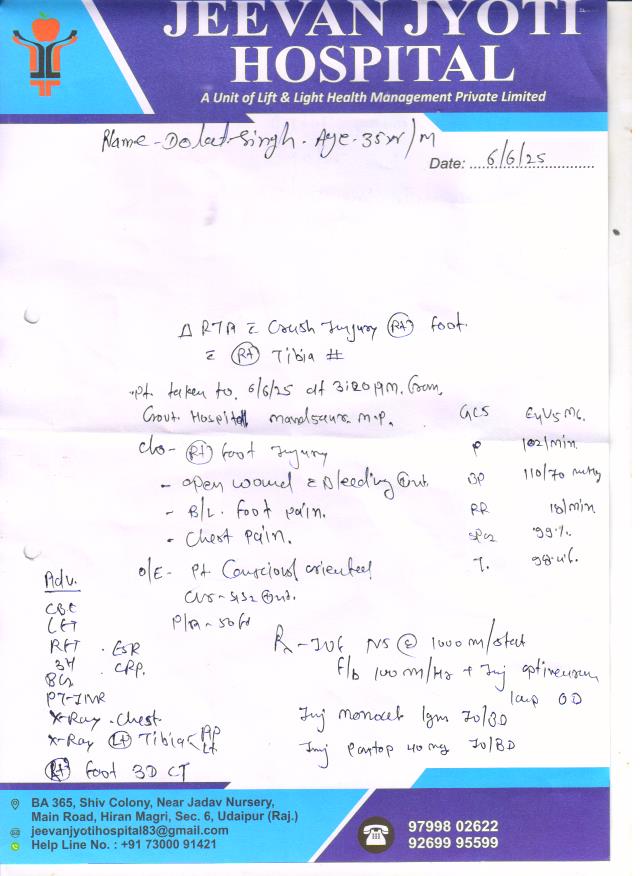 JEEVAN JYOTI
HOSPITAL
A Unit of Lift & Light Health Management Private Limited
Name - Dolat Singh. Age. 35 yr/M
Date: 6/6/25
Δ RTA c̄ Crush Injury (Rt) foot.
c̄ (Rt) Tibia #
Pt. taken to. 6/6/25 at 3:20 pm. from,
Govt. Hospital mandsaur M.P.
GCS E4V5M6.
P 102/min.
c/o - (Rt) foot Injury
- open wound c̄ Bleeding
BP 110/70 mmHg
- B/L. foot pain.
RR 18/min
- Chest pain.
SPO2 99%.
O/E - Pt Conscious oriented
T. 98.4%.
CVS - S1S2
P/A - soft
Adv.
CBC
LFT
RFT . ESR
. CRP.
PT-INR
X-Ray . Chest
X-Ray Tibia < AP Lt.
(Rt) foot 3D CT
Rx - IVF NS @ 1000 m/stat
f/b 100 m/Hr + Inj optineuron
1amp OD
Inj monocef 1gm IV/BD
Inj pantop 40 mg IV/BD
BA 365, Shiv Colony, Near Jadav Nursery,
Main Road, Hiran Magri, Sec. 6, Udaipur (Raj.)
jeevanjyotihospital83@gmail.com
Help Line No. : +91 73000 91421
97998 02622
92699 95599